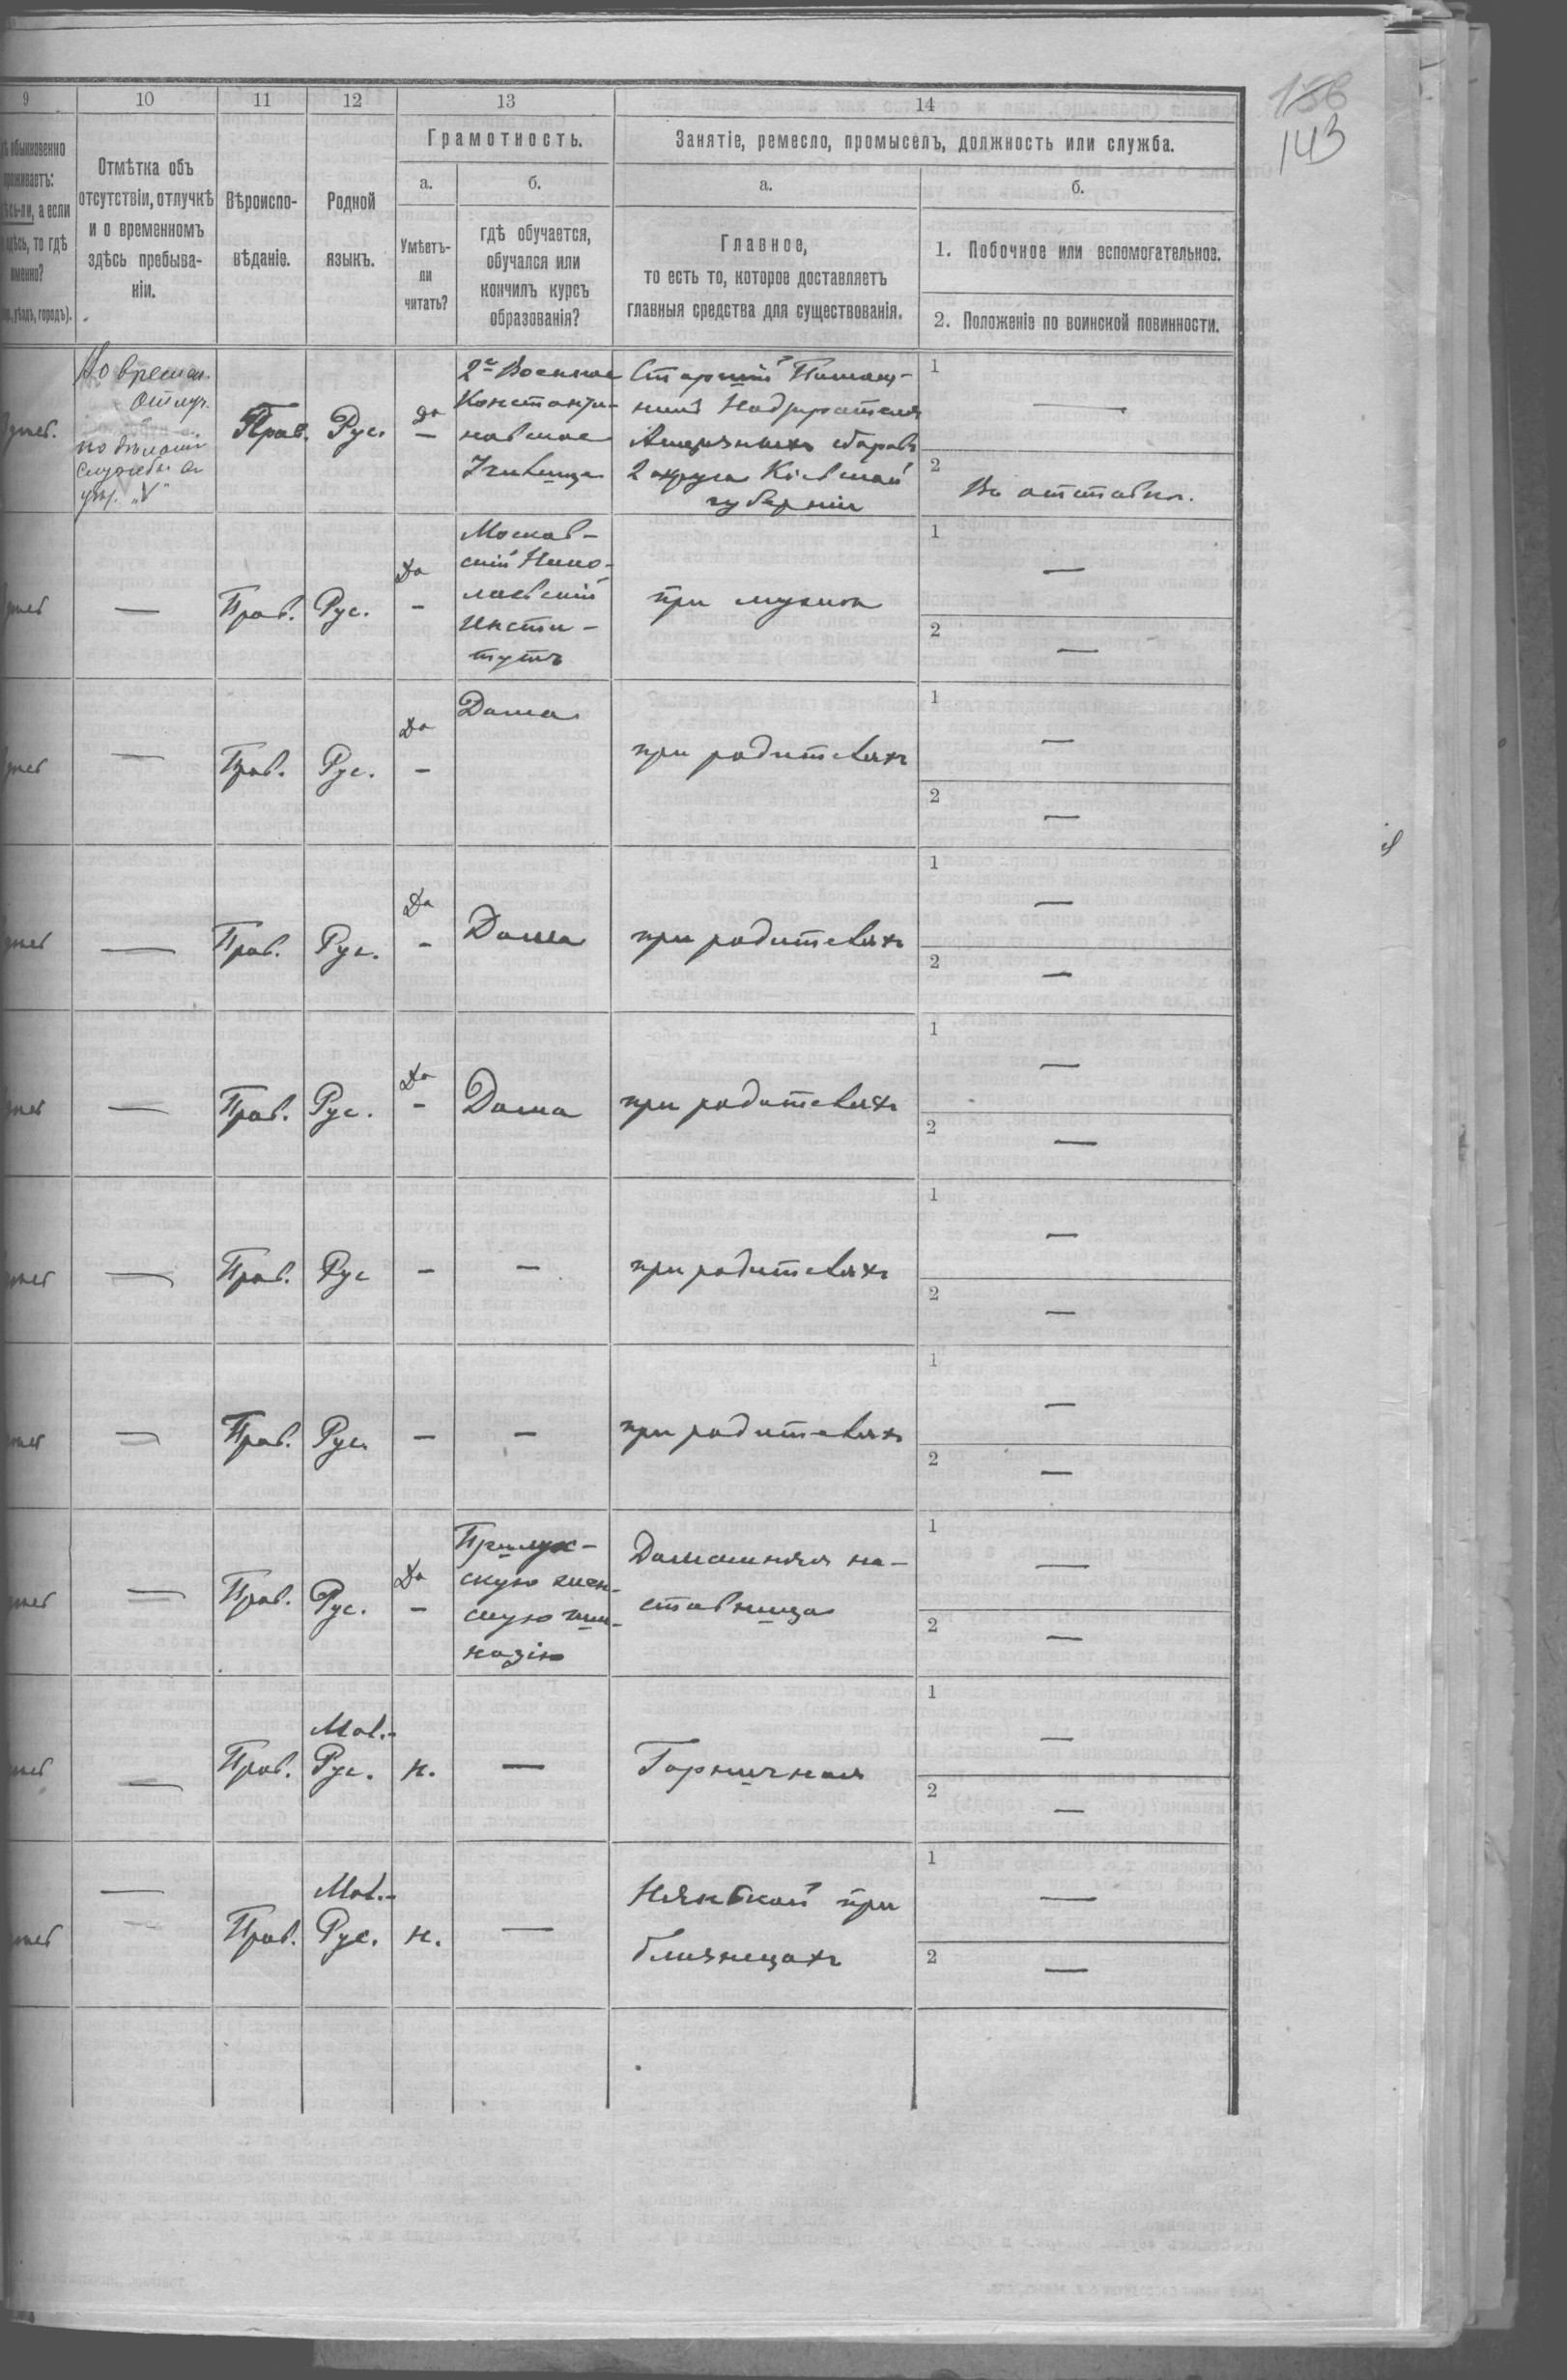 156
143
9 10 11 12 13 14
обыкновенно
проживаетъ:
а если
здѣсь, то гдѣ
именно?
уѣздъ, городъ).
Отмѣтка объ
отсутствіи, отлучкѣ
и о временномъ
здѣсь пребыва-
ніи.
Вѣроиспо-
вѣданіе.
Родной
языкъ.
Грамотность.
а.
Умѣетъ-
ли
читать?
б.
гдѣ обучается,
обучался или
кончилъ курсъ
образованія?
Занятіе, ремесло, промыселъ, должность или служба.
а.
Главное,
то есть то, которое доставляетъ
главныя средства для существованія.
б.
1. Побочное или вспомогательное.
2. Положеніе по воинской повинности.
Во времен.
отлуч.
по дѣламъ
службы
"V"
Прав.
Рус.
да
—
2е Военное
Константи-
новское
Училище
Старшій Помощ-
никъ Надзирателя
Акцизныхъ сборовъ
2 округа Кіевской
губерніи
1 —
2 Въ отставкѣ.
—
Прав.
Рус.
Да
—
Москов-
скій Нико-
лаевскій
Инсти-
тутъ
при мужѣ
1 —
2 —
—
Прав.
Рус.
Да
—
Дома
при родителяхъ
1 —
2 —
—
Прав.
Рус.
Да
—
Дома
при родителяхъ
1 —
2 —
—
Прав.
Рус.
Да
—
Дома
при родителяхъ
1 —
2 —
—
Прав.
Рус
—
—
при родителяхъ
1 —
2 —
—
Прав.
Рус.
—
—
при родителяхъ
1 —
2 —
—
Прав.
Рус.
Да
—
Прилук-
скую жен-
скую гим-
назію
Домашняя на-
ставница
1 —
2 —
—
Прав.
Мал.-
Рус.
н.
—
Горничная
1 —
2 —
—
Прав.
Мал.-
Рус.
н.
—
Нянькой при
близнецахъ
1 —
2 —